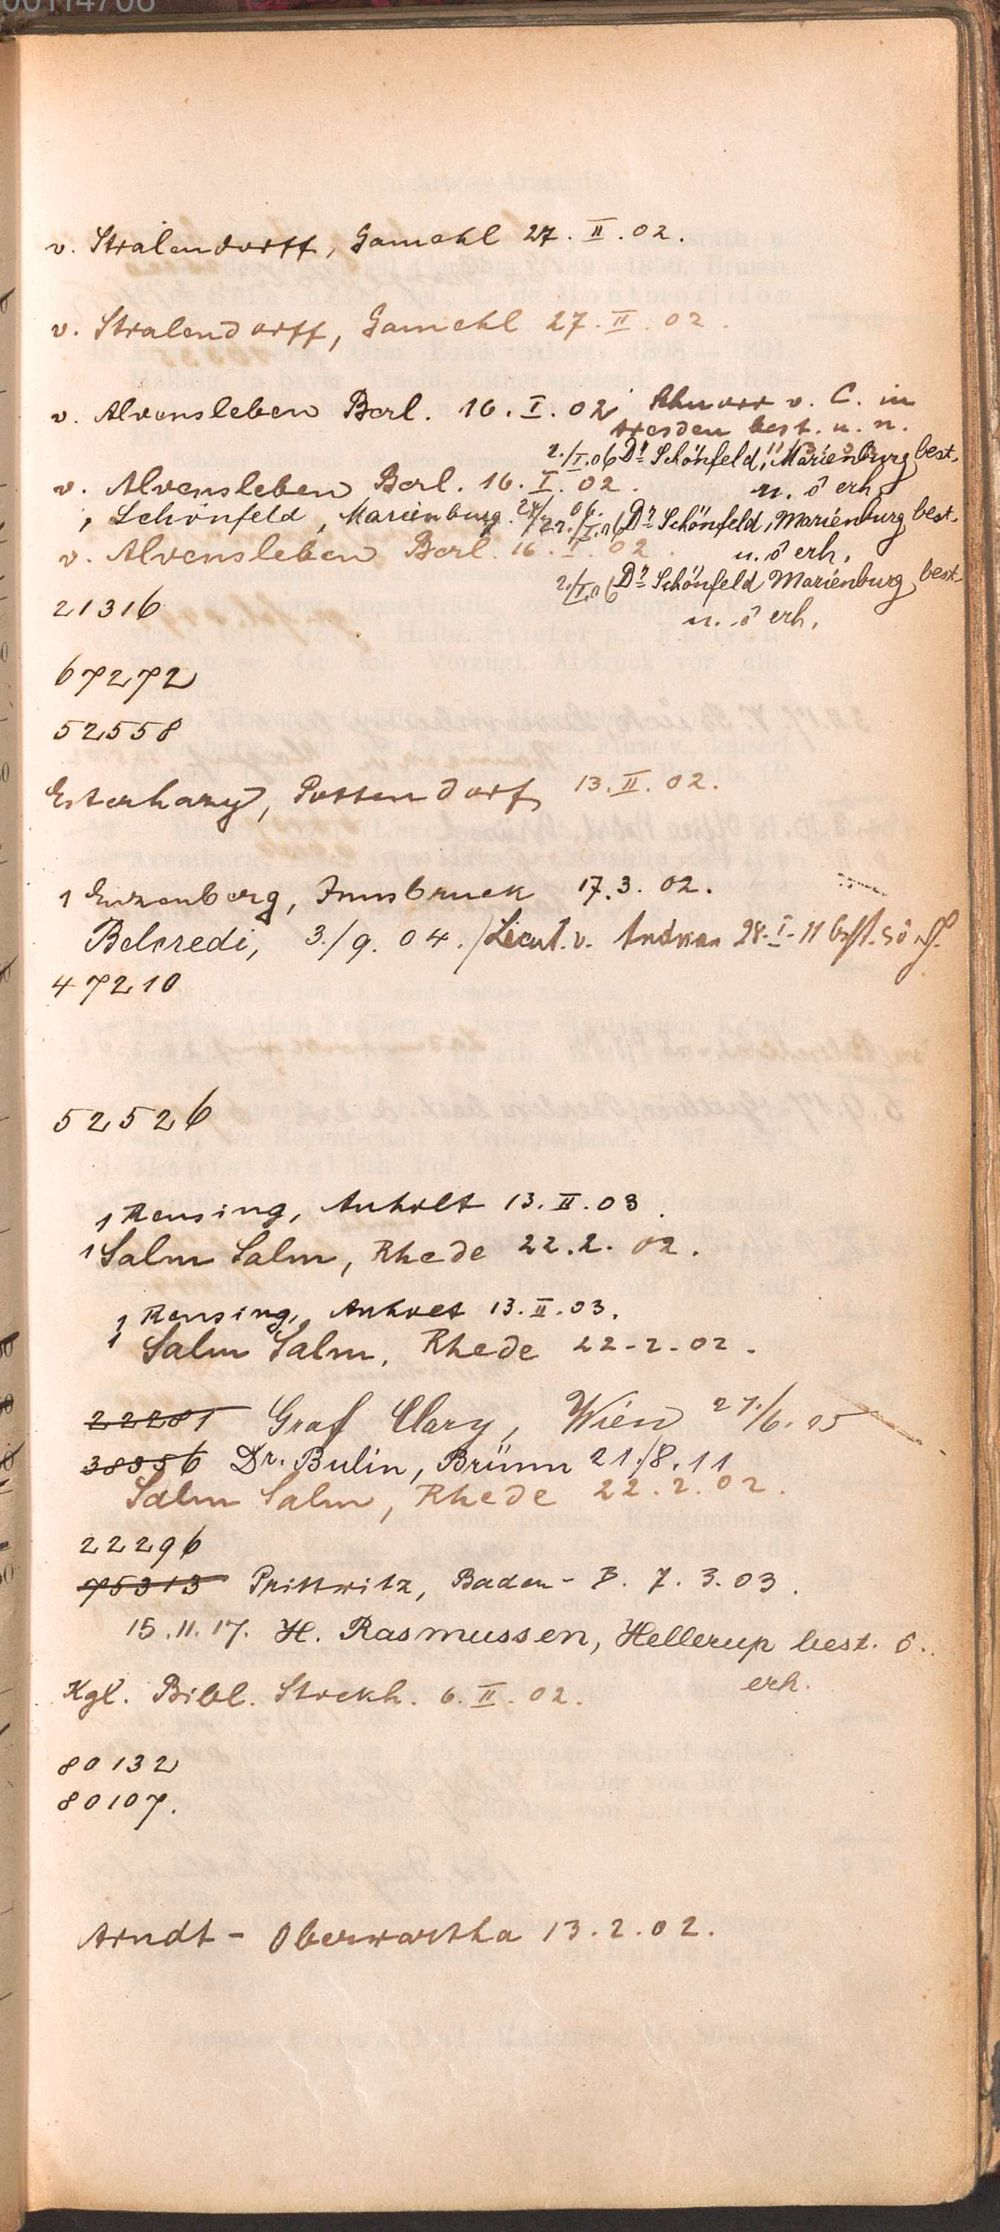 00114706
v. Stralendorff, Gamehl 27. II. 02.
v. Stralendorff, Gamehl 27. II. 02.
v. Alvensleben Berl. 16. I. 02 v. C. in
Dresden best. u. n.
2./I.06 Dr Schönfeld, Marienburg best.
v. Alvensleben Berl. 16. I. 02. u. ō erh.
Schönfeld, Marienburg. 2./I.06 Dr Schönfeld, Marienburg best.
v. Alvensleben Berl. 16. I. 02. u. ō erh.
2./I.06 Dr Schönfeld Marienburg best.
21316 u. ō erh.
67272
52558
Esterhazy, Pottendorf 13. II. 02.
1 Enzenberg, Innsbruck 17. 3. 02.
Belcredi, 3./9. 04. / Lieut. v. 28. I. 11
47210
52526
1 Rensing, Anholt 13. II. 03.
1 Salm Salm, Rhede 22. 2. 02.
1 Rensing, Anholt 13. II. 03.
1 Salm Salm, Rhede 22. 2. 02.
22281 Graf Clary, Wien 27./6. 05
38056 Dr. Bulin, Brünn 21./8. 11
Salm Salm, Rhede 22. 2. 02.
22296
75313 Prittwitz, Baden-B. 7. 3. 03.
15. 11. 17. H. Rasmussen, Hellerup best. ō.
erh.
Kgl. Bibl. Stockh. 6. II. 02.
80132
80107.
Arndt - Oberwartha 13. 2. 02.